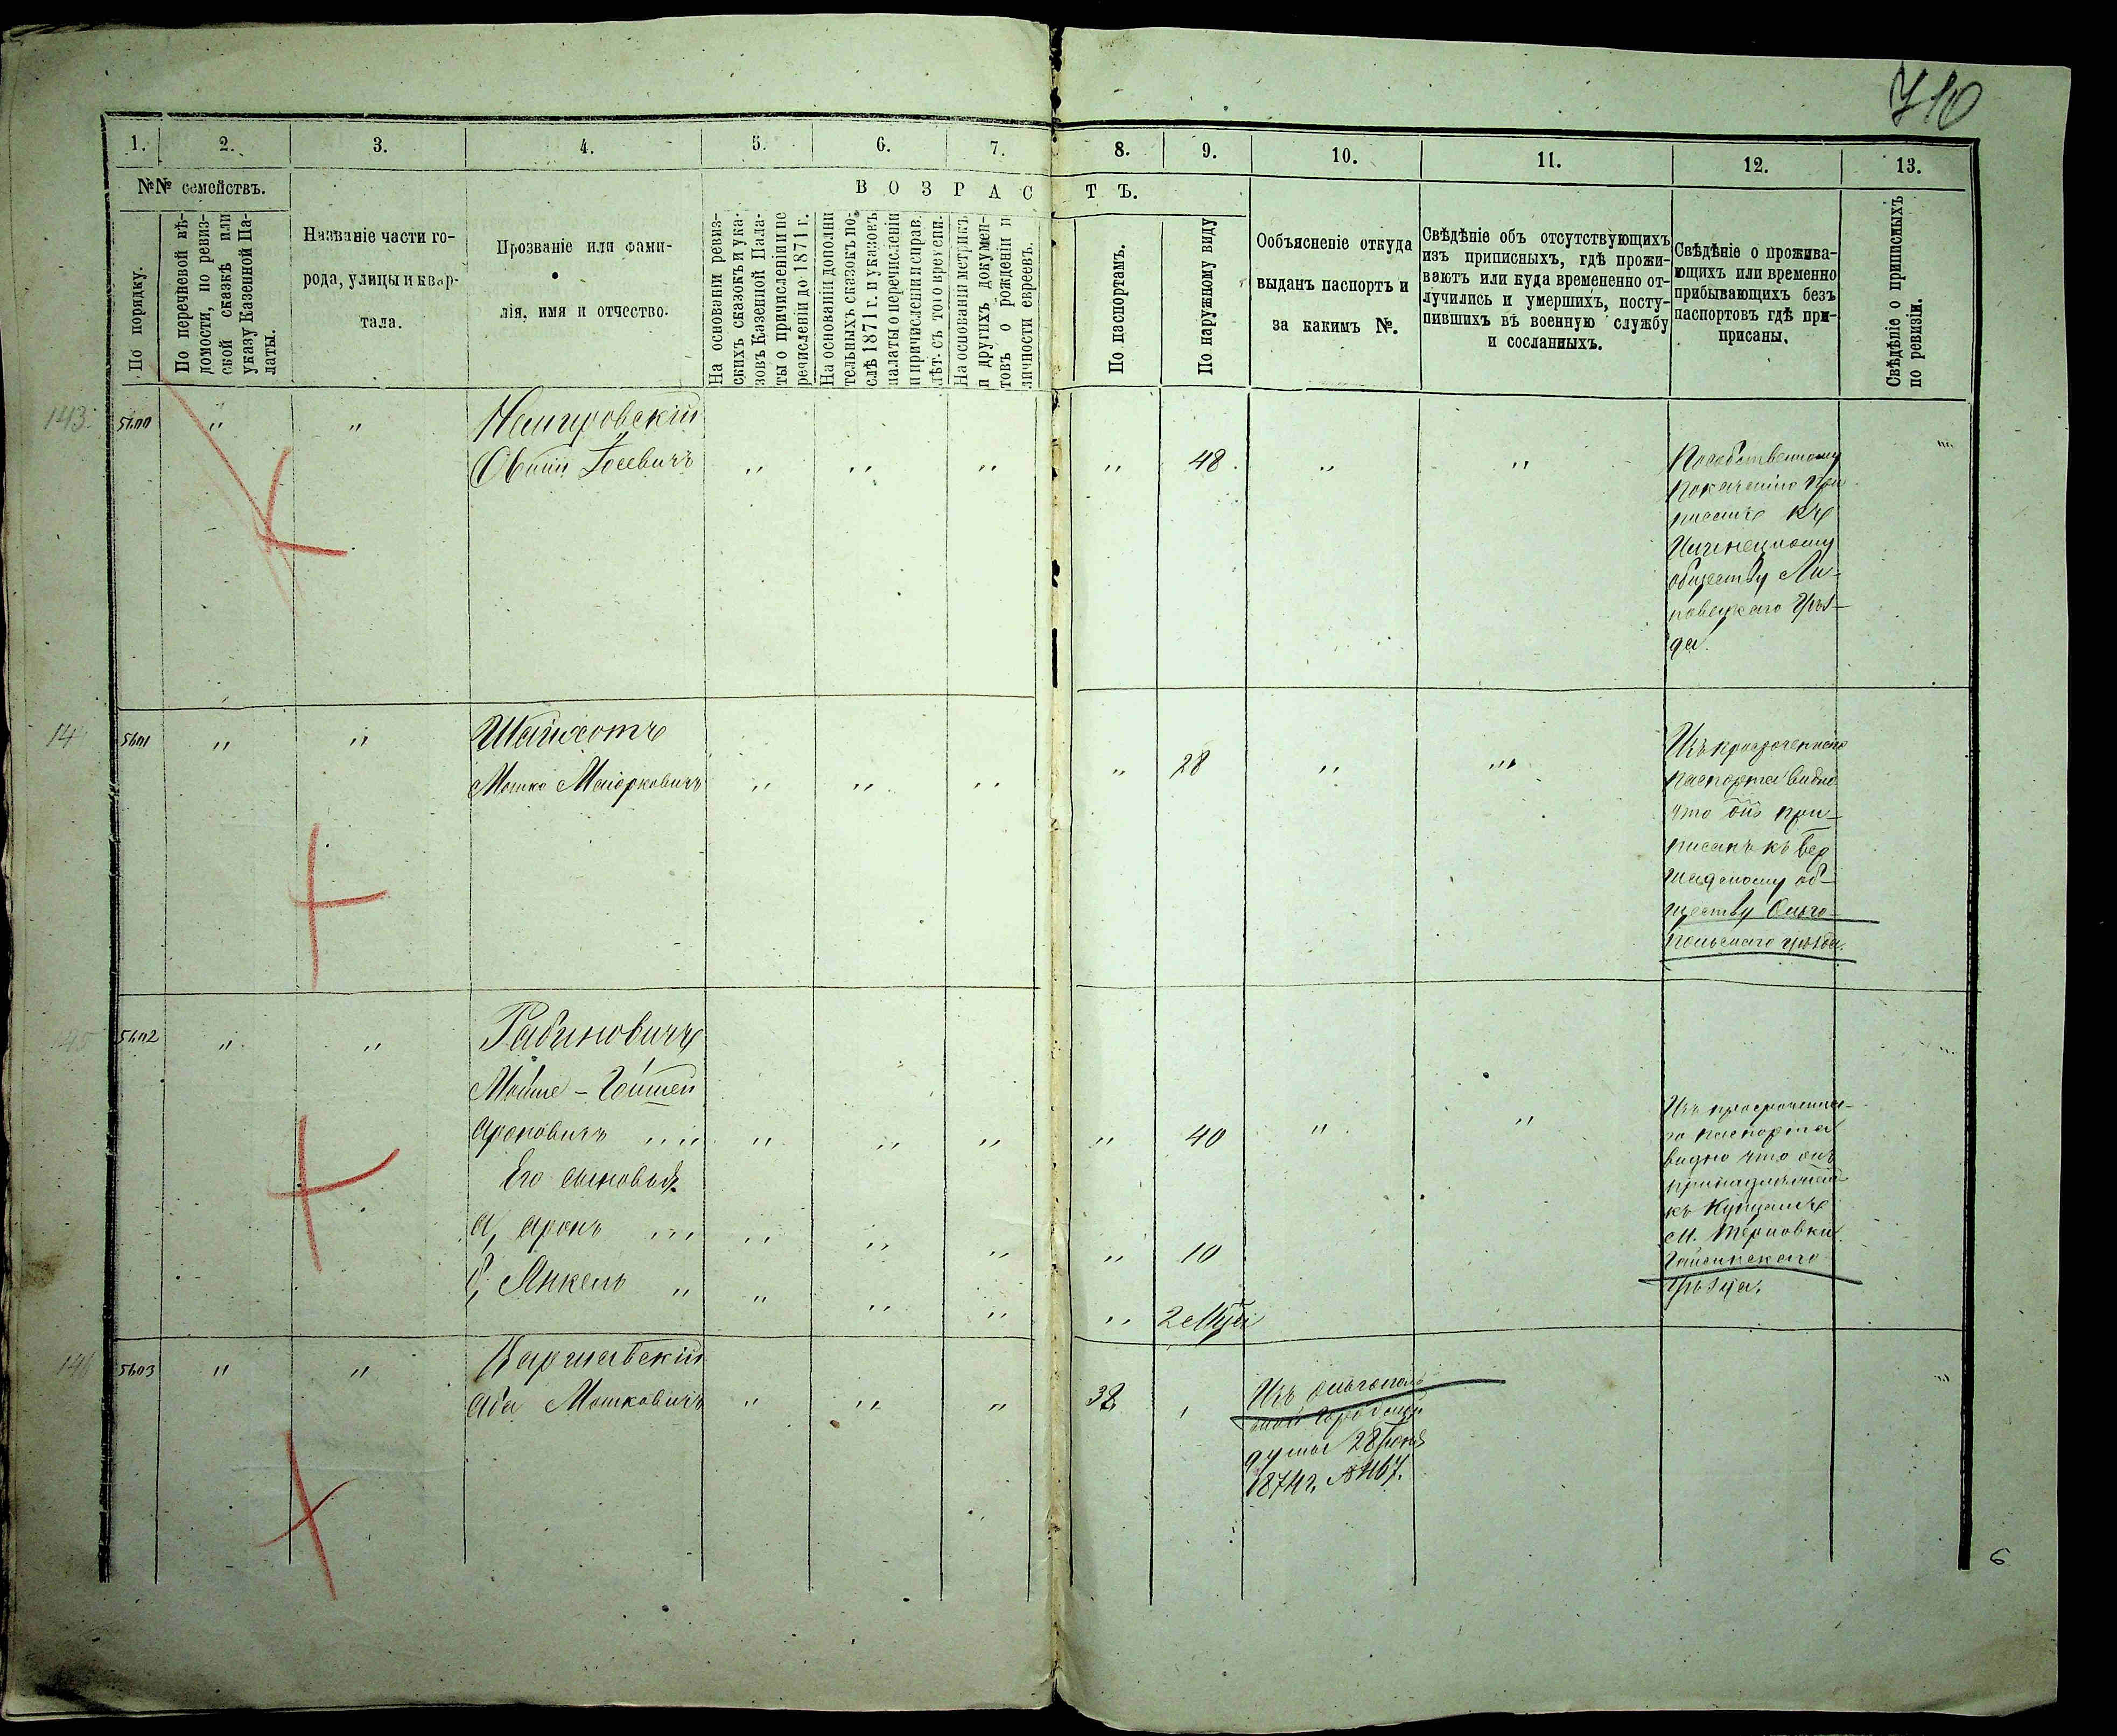 710
1. 2. 3. 4. 5. 6. 7. 8. 9. 10. 11. 12. 13.
№№ семействъ.
ВОЗРАСТЪ.
По порядку.
По перечневой вѣ-
домости, по ревиз-
ской сказкѣ или
указу Казенной Па-
латы.
Названіе части го-
рода, улицы и квар-
тала.
Прозваніе или фами-
лія, имя и отчество.
На основаніи ревиз-
скихъ сказокъ и ука-
зовъ Казенной Пала-
ты о причисленіи и не
речисленіи до 1871 г.
На основаніи дополни
тельныхъ сказокъ по-
слѣ 1871 г. и указокъ
палаты о перечисленіи
и причисленіи и справ.
лѣт. съ того времени.
На основаніи метрикъ
и другихъ докумен-
товъ о рожденіи и
личности евреевъ.
По паспортамъ.
По наружному виду
Ообъясненіе откуда
выданъ паспортъ и
за какимъ №.
Свѣдѣніе объ отсутствующихъ
изъ приписныхъ, гдѣ прожи-
ваютъ или куда времененно от-
лучились и умершихъ, посту-
пившихъ въ военную службу
и сосланныхъ.
Свѣдѣніе о прожива-
ющихъ или временно
прибывающихъ безъ
паспортовъ гдѣ при-
приасаны.
Свѣдѣніе о приписныхъ
по ревизіи.
143 5600 " " Немировскій
Овшій Іосевичъ " " " " 48. " " "
Пособственному
показанію при
писанъ къ
обществу Ли-
повецкаго Уѣз-
да.
14 5601 " " Шайхотъ
Мошко Маіорковичъ " " " " 28 " "
Изъ просроченнаго
паспорта видно
что онъ при-
писанъ къ Бер
шадскому об-
ществу Ольго-
польскаго уѣзда.
145 5602 " " Рабиновичъ
Мойше-
Ароновичъ " " " " " " 40 " "
Его сыновья
а, Аронъ " " " " " 10
б, Янкель " " " " " 2
Изъ просроченна-
го паспорта
видно что онъ
къ Купцамъ
м. Терновки
Гайсинскаго
уѣзда.
146 5603 " " Варшавскій
Аба Мошковичъ " " " 32 "
Изъ Ольгополь
ской Городской
думы 28 Іюня
1874 г. №467.
6